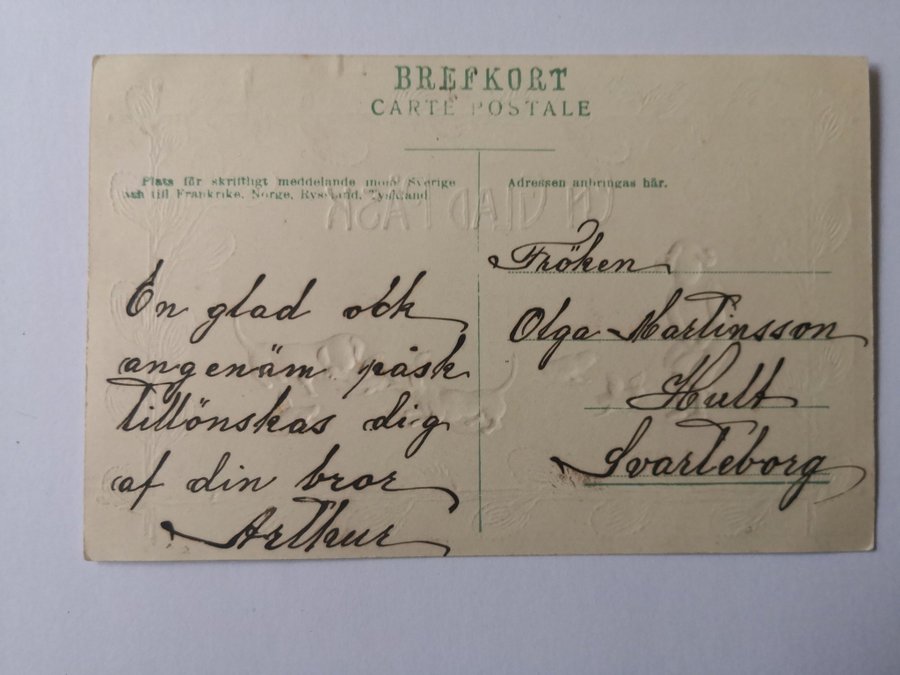 BREFKORT
CARTE POSTALE
Plats för skriftligt meddelande inom Sverige
och till Frankrike, Norge, Ryssland, Tyskland
Adressen anbringas här.
En glad ock
angenäm påsk
tillönskas dig
af din bror
Arthur
Fröken
Olga Martinsson
Hult
Svarteborg
EN GLAD PÅSK